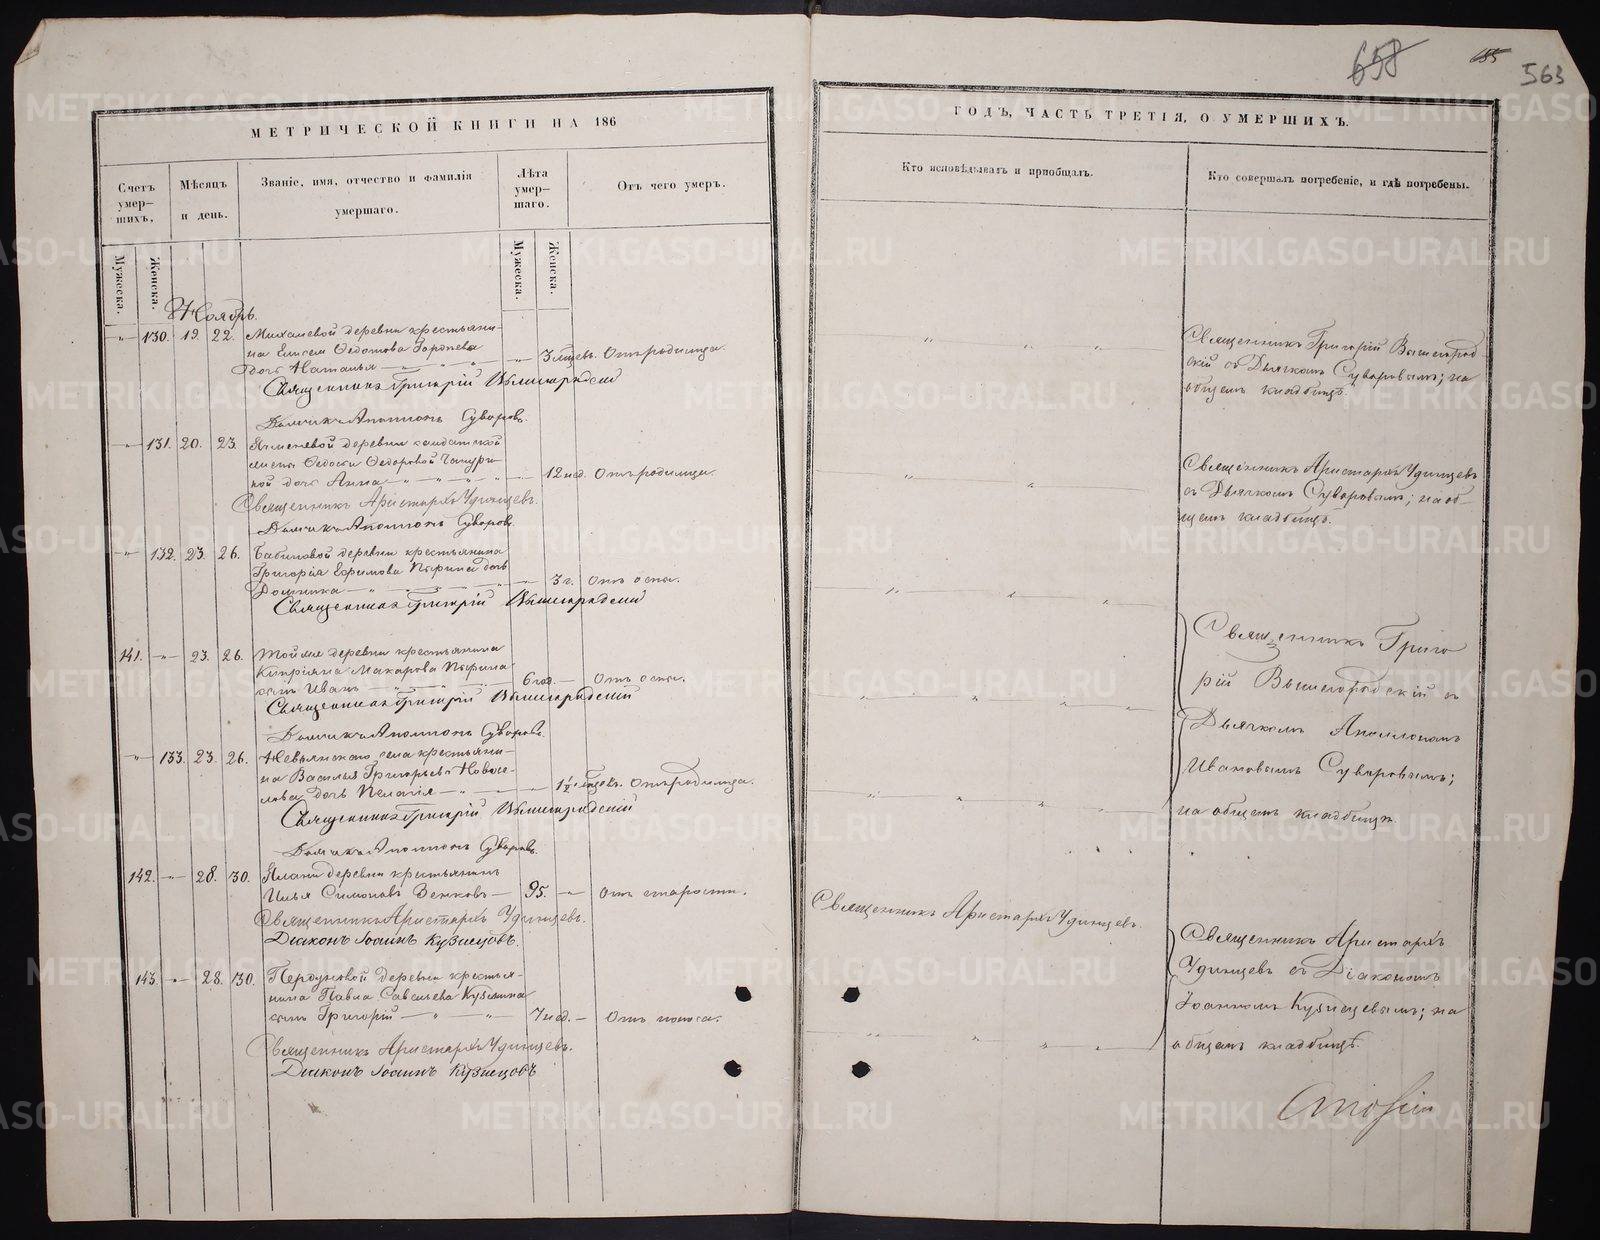 658 685 563
МЕТРИЧЕСКОЙ КНИГИ НА 186
ГОДЪ, ЧАСТЬ ТРЕТІЯ, О УМЕРШИХЪ.
Счетъ умер-шихъ,
Мѣсяцъ и день.
Званіе, имя, отчество и фамилія умершаго.
Лѣта умер-шаго.
Отъ чего умеръ.
Кто исповѣдывалъ и пріобщалъ.
Кто совершалъ погребеніе, и гдѣ погребены.
Мужеска. Женска.
Мужеска. Женска.
Ноябрь.
130. 19. 22. деревни крестьяни-
на Федотова
дочь Наталья 3 мѣсев. Отъ родимца.
Священникъ Григорій Вышегородскій
Дьячикъ Аполлонъ Суворовъ.
Священникъ Григорій Вышегород-
скій съ Дьячкомъ Суворовымъ; на
общемъ кладбищѣ.
131. 20. 23. деревни солдатской
Федоровой
дочь Анна 12 нед. Отъ родимца.
Священникъ Аристархъ Удинцевъ.
Дьячикъ Аполлонъ Суворовъ.
Священникъ Аристархъ Удинцевъ
съ Дьячкомъ Суворовымъ; на об-
щемъ кладбищѣ.
132. 23. 26. Бабиновой деревни крестьянина
Григорія Ефимова дочь
3 г. Отъ оспы.
Священникъ Григорій Вышегородскій
141. 23. 26. деревни крестьянина
Кипріяна Макарова
сынъ Иванъ 6 год. Отъ оспы.
Священникъ Григорій Вышегородскій
Дьячикъ Аполлонъ Суворовъ.
133. 23. 26. Невьянскаго села крестьяни-
на Василья Григорьева Новосе-
лова дочь Пелагія 1½ мѣсев. Отъ родимца.
Священникъ Григорій Вышегородскій
Дьячикъ Аполлонъ Суворовъ.
Священникъ Григо
рій Вышегородскій съ
Дьячкомъ Аполлономъ
Ивановымъ Суворовымъ;
на общемъ кладбищѣ.
142. 28. 30. деревни крестьянинъ
Илья Симоновъ 95. Отъ старости.
Священникъ Аристархъ Удинцевъ.
Діаконъ Іоаннъ Кузнецовъ.
Священникъ Аристархъ Удинцевъ.
143. 28. 30. Пердуновой деревни крестья-
нина Павла Савельева
сынъ Григорій 7 нед. Отъ поноса.
Священникъ Аристархъ Удинцевъ.
Діаконъ Іоаннъ Кузнецовъ
Священникъ Аристархъ
Удинцевъ съ Діакономъ
Іоанномъ Кузнецовымъ; на
общемъ кладбищѣ.
METRIKI.GASO-URAL.RU